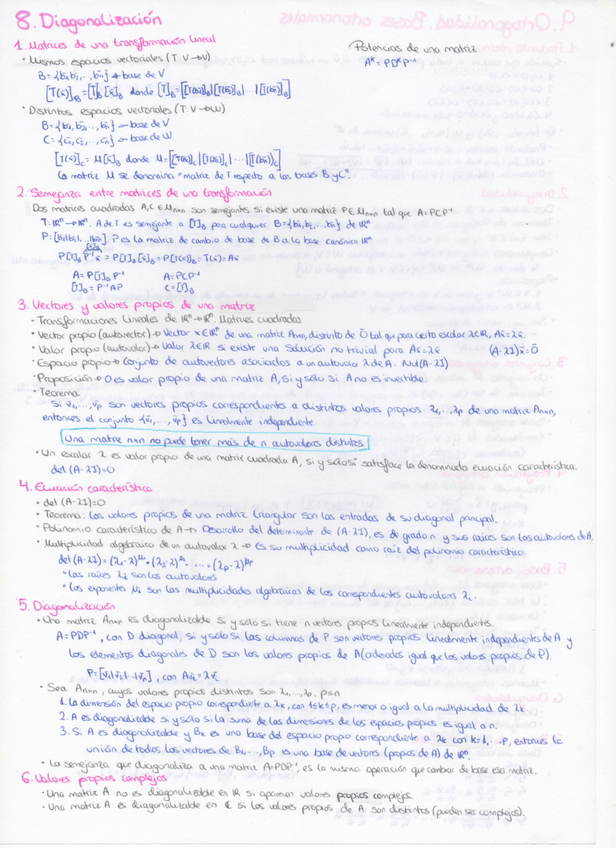 8. Diagonalización
1. Matrices de una transformación lineal
Potencias de una matriz
A^k = PD^kP⁻¹
• Mismos espacios vectoriales (T: V→V)
B = {b̄₁, b̄₂, ..., b̄n} → base de V
[T(x̄)]_B = [T]_B [x̄]_B donde [T]_B = [[T(b̄₁)]_B | [T(b̄₂)]_B | ... | [T(b̄n)]_B]
• Distintos espacios vectoriales (T: V→W)
B = {b̄₁, b̄₂, ..., b̄n} → base de V
C = {c̄₁, c̄₂, ..., c̄n} → base de W
[T(x̄)]_C = M[x̄]_B donde M = [[T(b̄₁)]_C | [T(b̄₂)]_C | ... | [T(b̄n)]_C]
La matriz M se denomina "matriz de T respecto a las bases B y C".
2. Semejanza entre matrices de una transformación
Dos matrices cuadradas A, C ∈ Mnxn son semejantes si existe una matriz P ∈ Mnxn tal que A = PCP⁻¹
T: ℝⁿ→ℝⁿ. A de T es semejante a [T]_B para cualquier B = {b̄₁, b̄₂, ..., b̄n} de ℝⁿ
P = [b̄₁|b̄₂|...|b̄n]. P es la matriz de cambio de base de B a la base canónica ℝⁿ
[x̄]_B
P[T]_B P⁻¹x̄ = P[T]_B [x̄]_B = P[T(x̄)]_B = T(x̄) = Ax̄
A = P[T]_B P⁻¹ A = PCP⁻¹
[T]_B = P⁻¹AP C = [T]_B
3. Vectores y valores propios de una matriz
• Transformaciones lineales de ℝⁿ→ℝⁿ Matrices cuadradas
• Vector propio (autovector) → Vector x ∈ ℝⁿ de una matriz Anxn, distinto de 0̄ tal que para cierto escalar λ∈ℝ, Ax̄ = λx̄.
• Valor propio (autovalor) → Valor λ∈ℝ si existe una solución no trivial para Ax̄ = λx̄ (A-λI)x̄ = 0̄
• Espacio propio → Conjunto de autovectores asociados a un autovalor λ de A. Nul(A-λI)
• Proposición → 0 es valor propio de una matriz A, si y sólo si A no es invertible.
• Teorema:
Si v̄₁, ..., v̄p son vectores propios correspondientes a distintos valores propios λ₁, ..., λp de una matriz Anxn,
entonces el conjunto {v̄₁, ..., v̄p} es linealmente independiente.
Una matriz nxn no puede tener más de n autovalores distintos
• Un escalar λ es valor propio de una matriz cuadrada A, si y sólo si satisface la denominada ecuación característica
det (A-λI)=0
4. Ecuación característica
• det (A-λI)=0
• Teorema: Los valores propios de una matriz triangular son las entradas de su diagonal principal.
• Polinomio característico de A → Desarrollo del determinante de (A-λI), es de grado n y sus raíces son los autovalores de A.
• Multiplicidad algebraica de un autovalor λ → Es su multiplicidad como raíz del polinomio característico.
det (A-λI) = (λ₁-λ)^μ₁ · (λ₂-λ)^μ₂ · ... · (λp-λ)^μp
• Las raíces λi son los autovalores
• Los exponentes μi son las multiplicidades algebraicas de los correspondientes autovalores λi.
5. Diagonalización
• Una matriz Anxn es diagonalizable si y sólo si tiene n vectores propios linealmente independientes.
A = PDP⁻¹, con D diagonal, si y sólo si las columnas de P son vectores propios linealmente independientes de A y
los elementos diagonales de D son los valores propios de A (ordenados igual que los valores propios de P).
P = [v̄₁|v̄₂|...|v̄n], con Av̄i = λv̄i
• Sea Anxn, cuyos valores propios distintos son λ₁, ..., λp, p≤n
1. La dimensión del espacio propio correspondiente a λk, con 1≤k≤p, es menor o igual a la multiplicidad de λk
2. A es diagonalizable si y sólo si la suma de las dimensiones de los espacios propios es igual a n.
3. Si A es diagonalizable y Bk es una base del espacio propio correspondiente a λk con k=1, ..., p, entonces la
unión de todos los vectores de B₁, ..., Bp es una base de vectores (propios de A) de ℝⁿ.
• La semejanza que diagonaliza a una matriz A=PDP⁻¹, es la misma operación que cambiar de base esa matriz.
6. Valores propios complejos
• Una matriz A no es diagonalizable en ℝ si aparecen valores propios complejos.
• Una matriz A es diagonalizable en ℂ si los valores propios de A son distintos (pueden ser complejos).